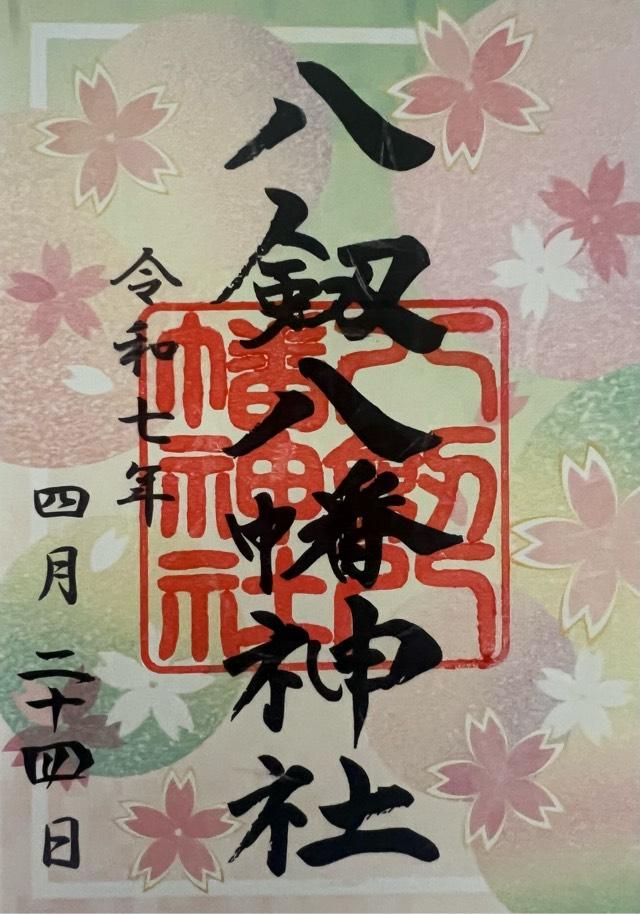 八劔八幡神社
令和七年
四月二十四日
八劔八幡神社